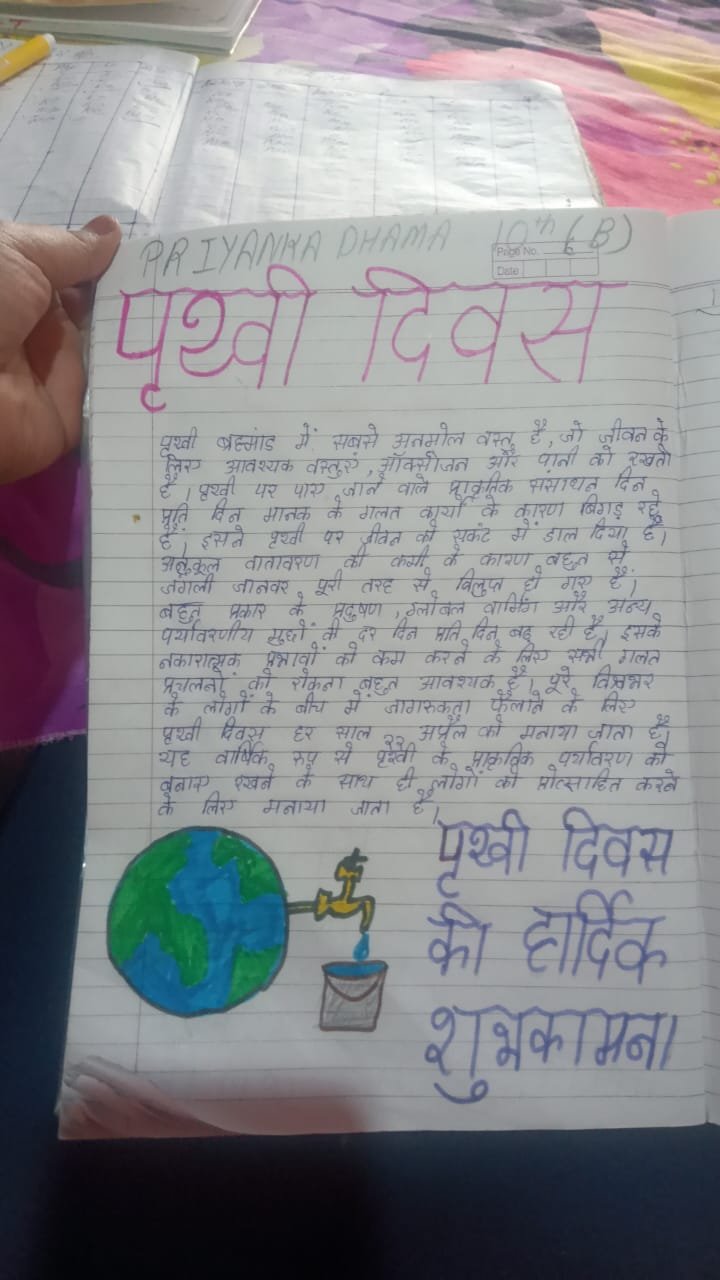 PRIYANKA DHAMA 10th (B)
Page No.
Date
पृथ्वी दिवस
पृथ्वी ब्रहमांड में सबसे अनमोल वस्तु है, जो जीवन के
लिए आवश्यक वस्तुएं, ऑक्सीजन और पानी को रखती
है। पृथ्वी पर पाए जाने वाले प्राकृतिक संसाधन दिन
प्रति दिन मानक के गलत कार्यो के कारण बिगड़ रहे
हैं। इसने पृथ्वी पर जीवन को सकंट में डाल दिया है।
अनुकूल वातावरण की कमी के कारण बहुत से
जंगली जानवर पूरी तरह से विलुप्त हो गए हैं।
बहुत प्रकार के प्रदुषण, ग्लोबल वार्मिंग और अन्य
पर्यावरणीय मुद्दों की दर दिन प्रति दिन बढ़ रही है, इसके
नकारात्मक प्रभावों को कम करने के लिए सभी गलत
प्रचलनों को रोकना बहुत आवश्यक है। पूरे विश्वभर
के लोगों के बीच में जागरुकता फैलाने के लिए
पृथ्वी दिवस हर साल 22 अप्रैल को मनाया जाता है।
यह वार्षिक रुप से पृथ्वी के प्राकृतिक पर्यावरण को
बनाए रखने के साथ ही लोगों को प्रोत्साहित करने
के लिए मनाया जाता है।
पृथ्वी दिवस
की हार्दिक
शुभकामना